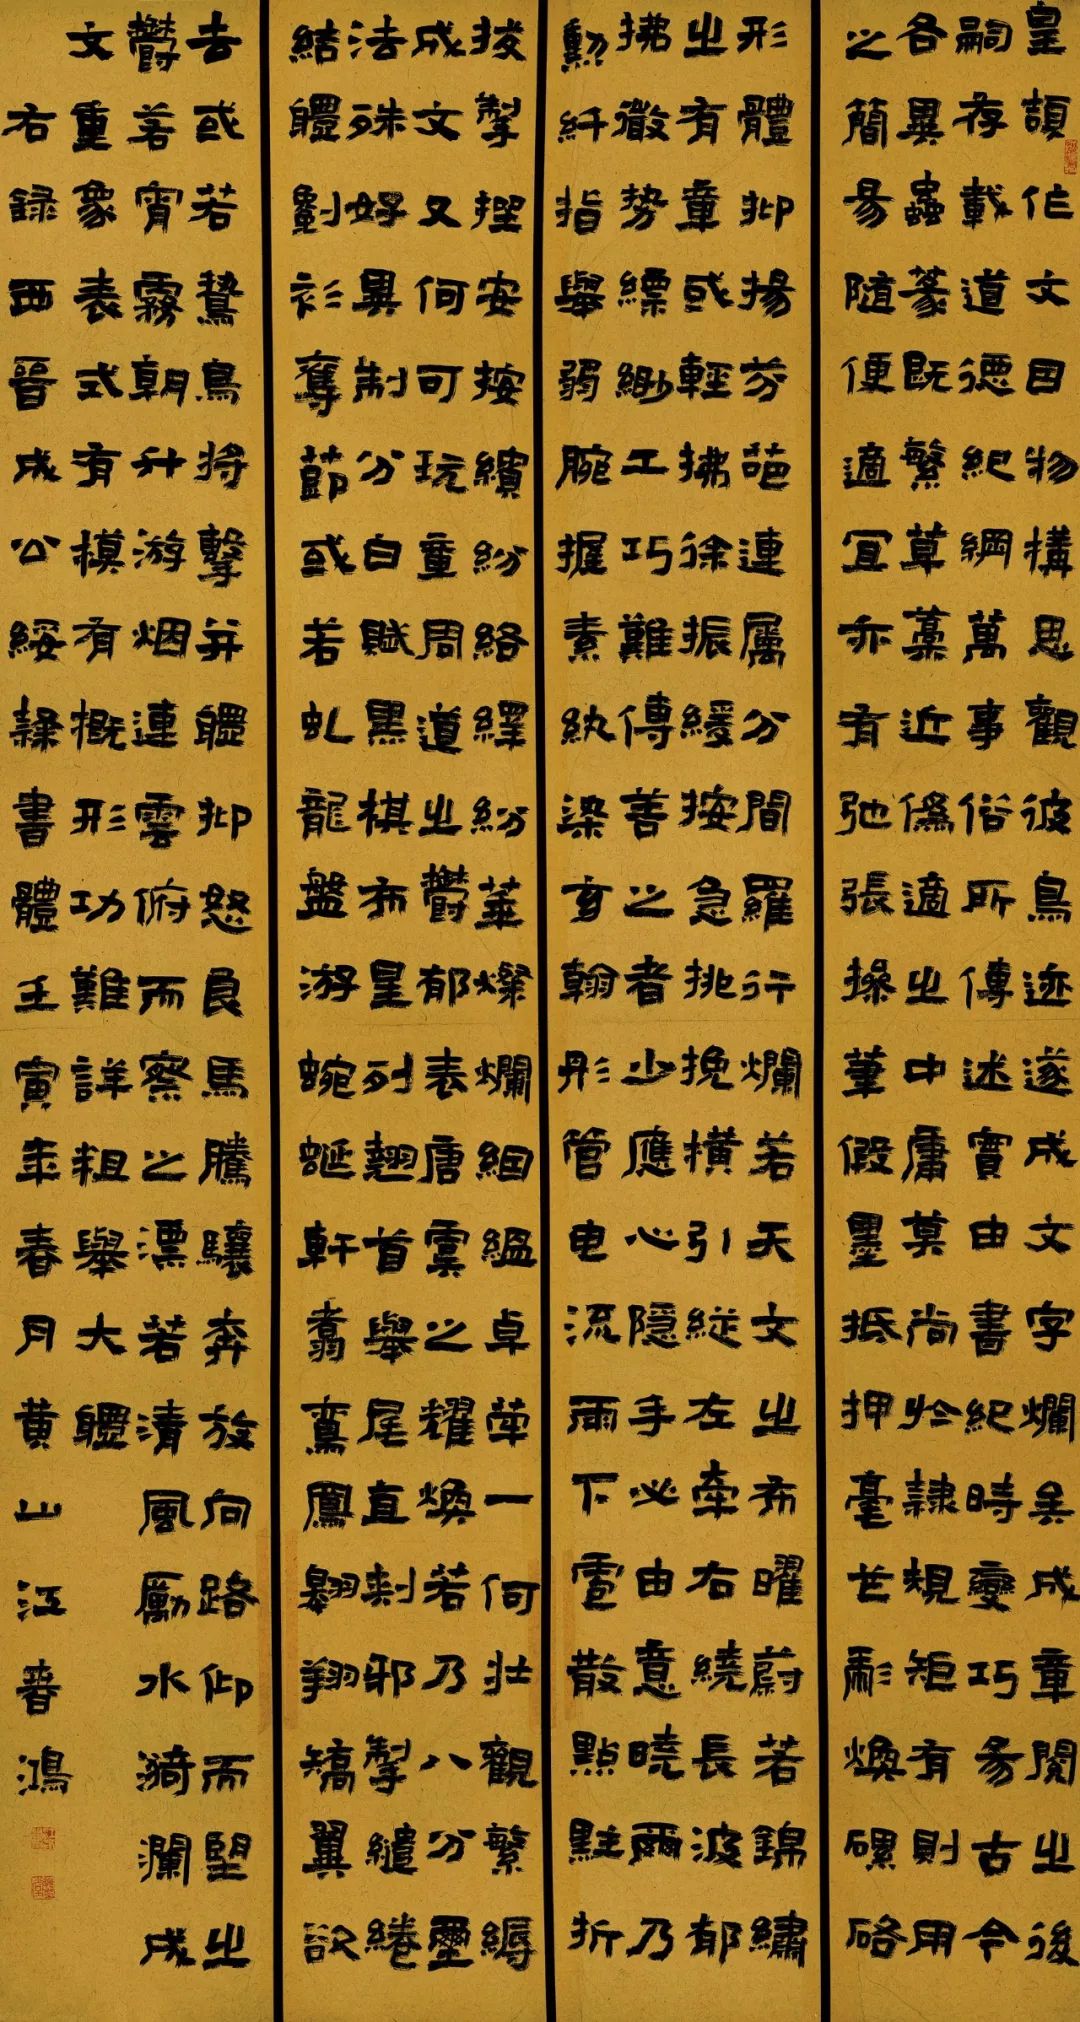 皇頡作文因物構思觀彼鳥迹遂成文字爛矣成章閱之後
嗣存載道德紀綱萬事俗所傳述實由書紀時變巧易古今
各異蟲篆既繁草藁近僞適之中庸莫尚於隸規矩有則用
之簡易隨便適宜亦有弛張操筆假墨抵押毫芒彪煥磥硌
形體抑揚芬葩連屬分間羅行爛若天文之布曜蔚若錦繡
之有章或輕拂徐振緩按急挑挽橫引縱左牽右繞長波郁
拂微勢縹緲工巧難傳善之者少應心隱手必由意曉爾乃
動纤指舉弱腕握素紈染玄翰彤管电流雨下雹散點黈折
拔掣挃安按繽紛絡繹紛華燦爛絪縕卓犖一何壯觀繁縟
成文又何可玩重周道之鬱郁表唐虞之耀煥若乃八分璽
法殊好異制分白賦黑棋布星列翹首舉尾直刺邪掣繾綣
結軆劖衫奪節或若虬龍盤游蜿蜒軒翥鸞鳳翱翔矯翼欲
去或若鷙鳥將擊并軆抑怒良馬騰驤奔放向路仰而望之
鬱若霄霧朝升游烟連雲俯而察之漂若清風厲水漪瀾成
文垂象表式有模有概形功難詳粗舉大軆
右録西晉成公綏隸書體壬寅年春月黄山江鴻